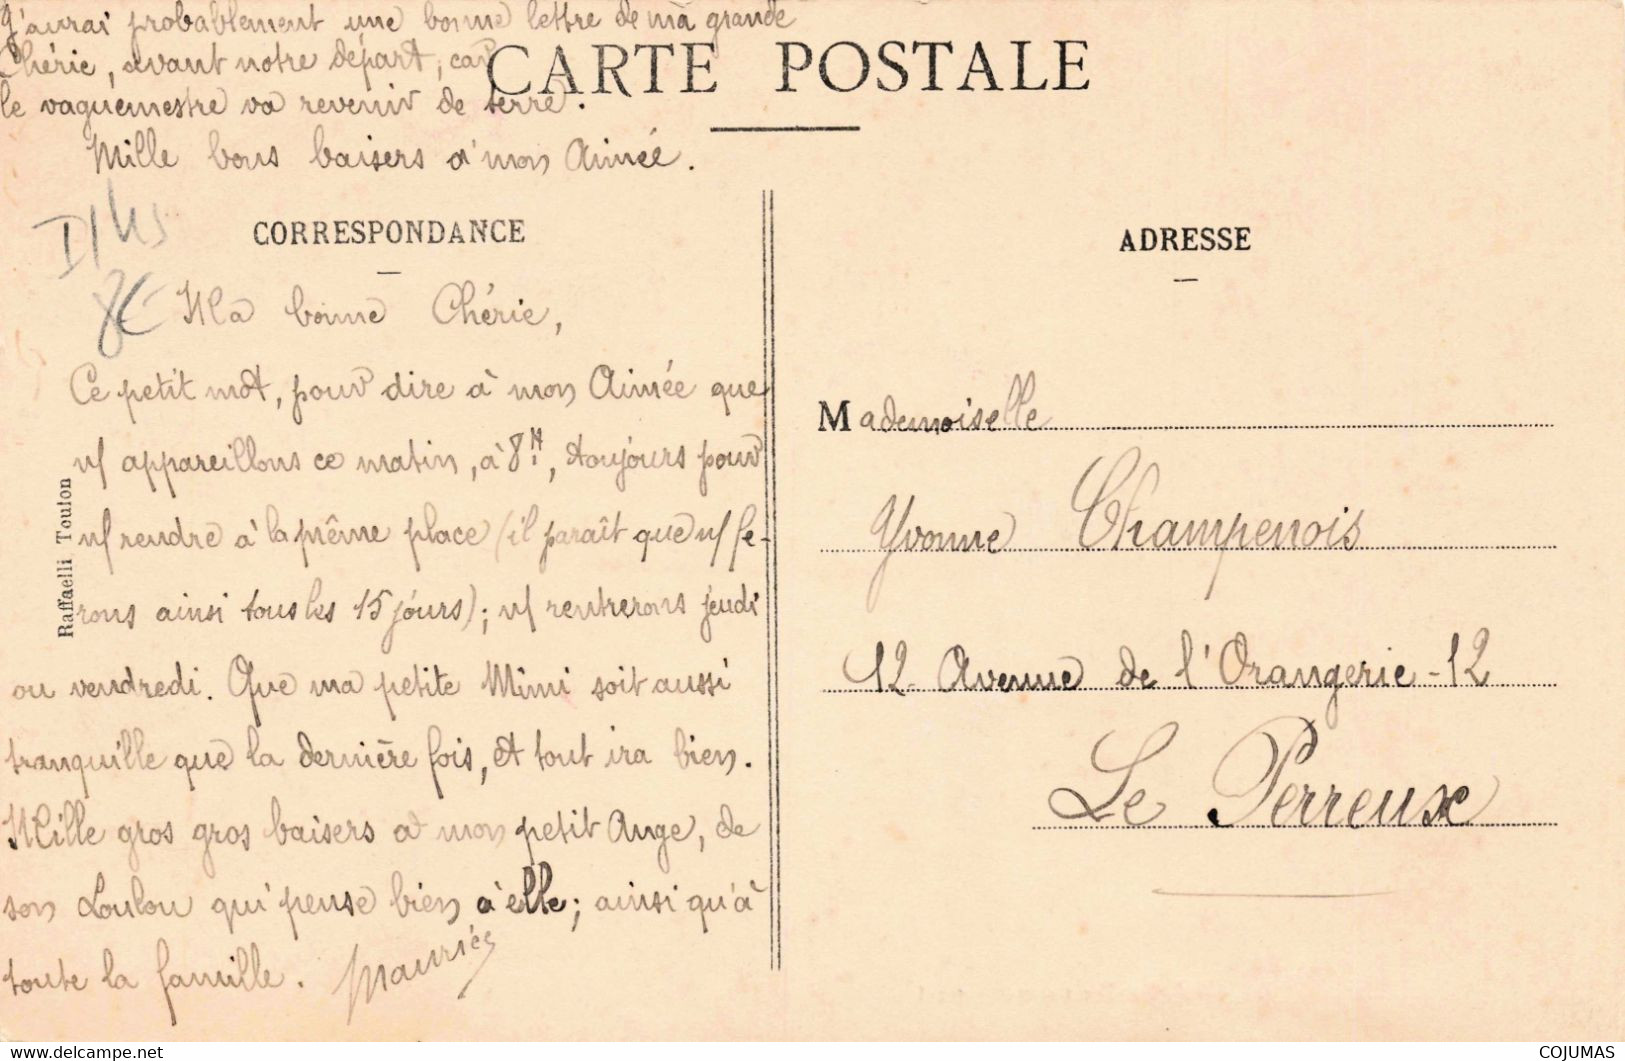 J'aurai probablement une bonne lettre de ma grande
Chérie, avant notre départ, car
le vaguemestre va revenir de terre.
Mille bons baisers à mon Aimée.
CARTE POSTALE
CORRESPONDANCE
8€
Ma bonne Chérie,
Ce petit mot, pour dire à mon Aimée que
n/ appareillons ce matin, à 8H, toujours pour
n/ rendre à la même place (il paraît que n/ fe-
rons ainsi tous les 15 jours); n/ rentrerons jeudi
ou vendredi. Que ma petite Mimi soit aussi
tranquille que la dernière fois, et tout ira bien.
Mille gros gros baisers à mon petit Ange, de
son Loulou qui pense bien à elle; ainsi qu'à
toute la famille. Maurice
Raffaelli Toulon
ADRESSE
Mademoiselle
Yvonne Champenois
12- Avenue de l'Orangerie -12
Le Perreux
© delcampe.net
COJUMAS